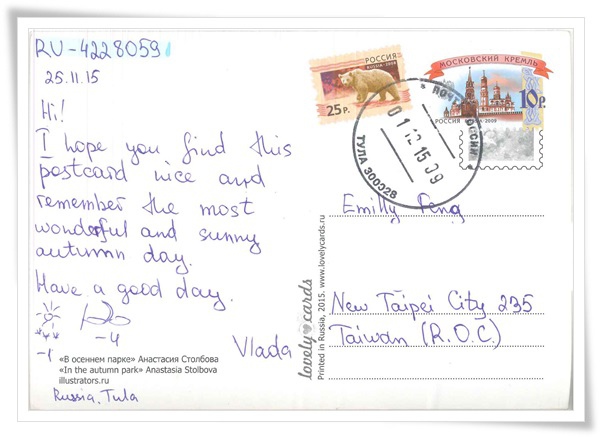 RU-4228059
25.11.15
Hi!
I hope you find this
postcard nice and
remember the most
wonderful and sunny
autumn day.
Have a good day.
-4
-1
Vlada
«В осеннем парке» Анастасия Столбова
«In the autumn park» Anastasia Stolbova
illustrators.ru
Russia, Tula
РОССИЯ
RUSSIA · 2008
25р.
МОСКОВСКИЙ КРЕМЛЬ
10р.
РОССИЯ 2009
ПОЧТА РОССИИ
01 12 15 09
ТУЛА 300028
lovely cards
Printed in Russia, 2015. www.lovelycards.ru
Emilly Feng
New Taipei City 235
Taiwan (R.O.C.)